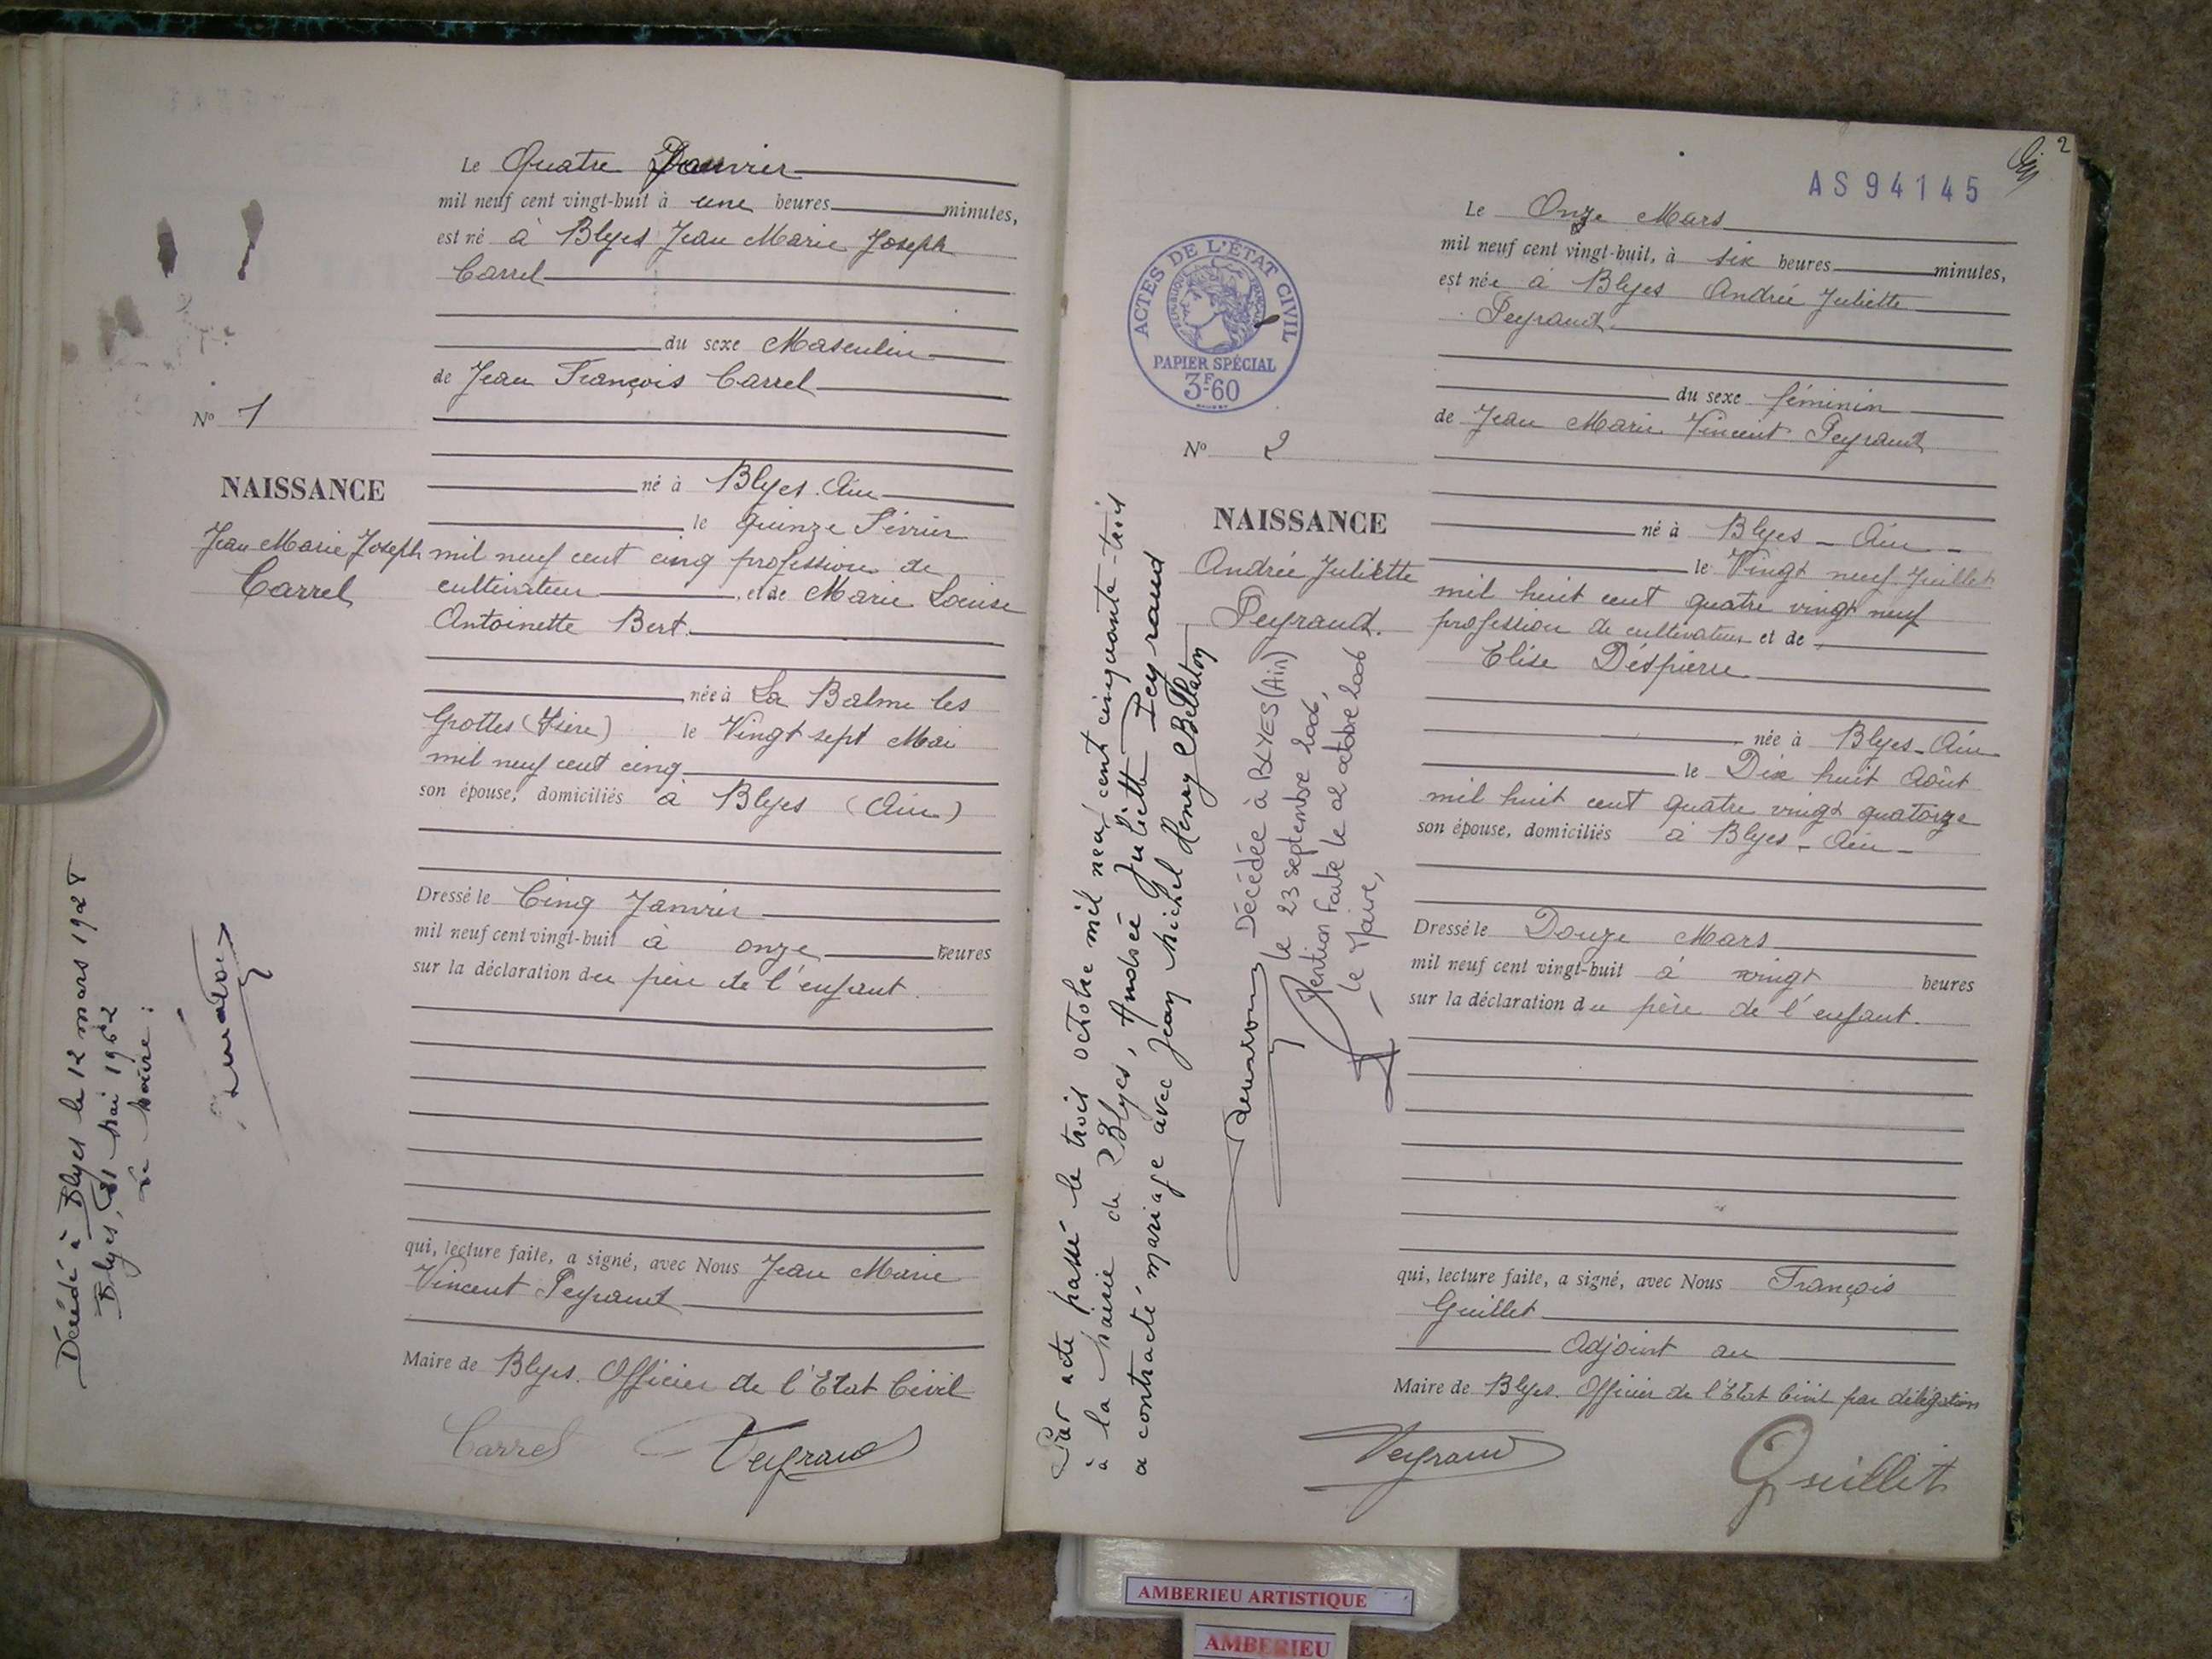 Le Quatre Janvier
mil neuf cent vingt-huit à une heures minutes,
est né à Blyes Jean Marie Joseph
Carrel
du sexe Masculin
de Jean François Carrel
né à Blyes Ain
le quinze Février
mil neuf cent cinq profession de
cultivateur et de Marie Louise
Antoinette Bert
née à La Balme les
Grottes (Isère) le Vingt sept Mai
mil neuf cent cinq
son épouse, domiciliés à Blyes (Ain)
Dressé le Cinq Janvier
mil neuf cent vingt-huit à onze heures
sur la déclaration du père de l'enfant.
qui, lecture faite, a signé, avec Nous Jean Marie
Vincent Peyraud
Maire de Blyes. Officier de l'Etat Civil
Carrel Peyraud
N° 1
NAISSANCE
Jean Marie Joseph
Carrel
Décédé à Blyes le 12 mars 1928
Blyes, 31 Mai 1962
Le Maire :
2
AS 94145
Le Onze Mars
mil neuf cent vingt-huit, à six heures minutes,
est née à Blyes Andrée Juliette
Peyraud.
du sexe féminin
de Jean Marie Vincent Peyraud
né à Blyes - Ain -
le Vingt neuf Juillet
mil huit cent quatre vingt neuf
profession de cultivateur et de
Elise Déspierre
née à Blyes - Ain
le Dix huit Août
mil huit cent quatre vingt quatorze
son épouse, domiciliés à Blyes - Ain -
Dressé le Douze Mars
mil neuf cent vingt-huit à vingt heures
sur la déclaration du père de l'enfant.
qui, lecture faite, a signé, avec Nous François
Guillet
Adjoint au
Maire de Blyes. Officier de l'Etat Civil par délégation
Peyraud Guillet
ACTES DE L'ÉTAT CIVIL
RÉPUBLIQUE FRANÇAISE
PAPIER SPÉCIAL
3F60
N° 2
NAISSANCE
Andrée Juliette
Peyraud.
Par acte passé le trois octobre mil neuf cent cinquante-trois
à la mairie de Blyes, Andrée Juliette Peyraud
a contracté mariage avec Jean Michel Henry
Décédée à BLYES (Ain)
le 23 septembre 2006,
Mention faite le 02 octobre 2006
Le Maire,
AMBERIEU ARTISTIQUE
AMBERIEU